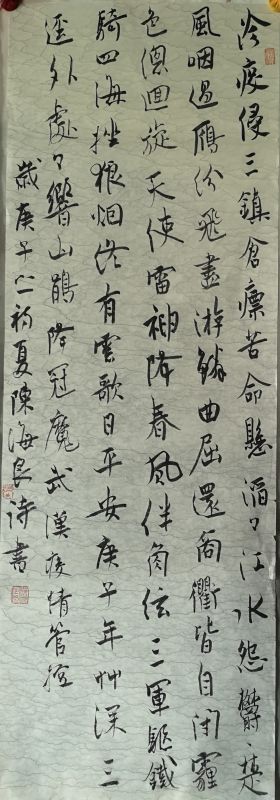 冷疫侵三鎮倉瘭苦命懸滔々江水怨鬱々楚
風咽過雁紛飛盡游鱗曲屈還商衢皆自閉霾
色迴旋天使雷神降春風伴角弦三軍驅鐵
騎四海挫狼烟終有雲歌日平安庚子年艸深三
逕外處々響山鵑降冠魔武漢疫情管控
歲庚子初夏陳海良詩書